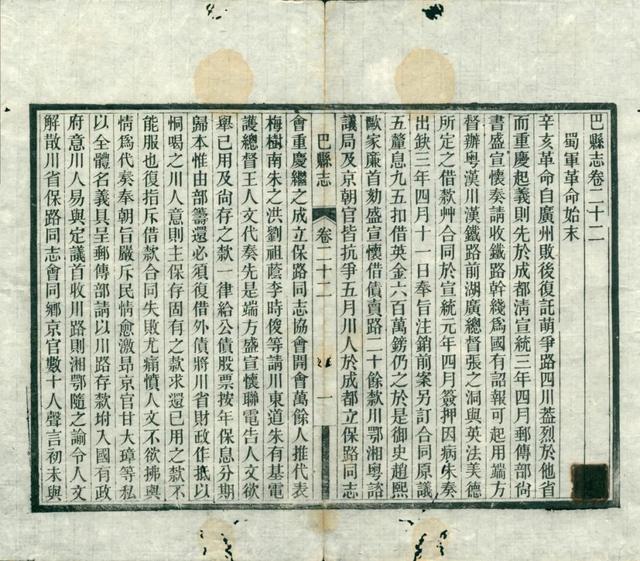 巴縣志卷二十二
蜀軍革命始末
辛亥革命自廣州敗後復託萌爭路四川葢烈於他省
而重慶起義則先於成都淸宣統三年四月郵傳部尙
書盛宣懷奏請收鐵路幹綫爲國有詔報可起用端方
督辦粤漢川漢鐵路前湖廣總督張之洞與英法美德
所定之借款艸合同於宣統元年四月簽押因病未奏
出缺三年四月十一日奉旨注銷前案另訂合同原議
五釐息九五扣借英金六百萬鎊仍之於是御史趙熙
歐家廉首劾盛宣懷借債賣路二十餘款川鄂湘粤諮
議局及京朝官皆抗爭五月川人於成都立保路同志
巴縣志
卷二十二
一
會重慶繼之成立保路同志協會開會萬餘人推代表
梅樹南朱之洪劉祖蔭李時俊等請川東道朱有基電
護總督王人文代奏先是端方盛宣懷聯電告人文欲
舉已用及尙存之款一律給公債股票按年保息分期
歸本惟由部籌還必須復借外債將川省財政作抵以
恫喝之川人意則主保存固有之款求還已用之款不
能服也復指斥借款合同失敗尤痛憤人文不欲拂輿
情爲代奏奉朝旨嚴斥民情愈激昂京官甘大璋等私
以全體名義具呈郵傳部請以川路存款坿入國有政
府意川人易與定議首收川路則湘鄂隨之諭令人文
解散川省保路同志會同鄕京官數十人聲言初未與